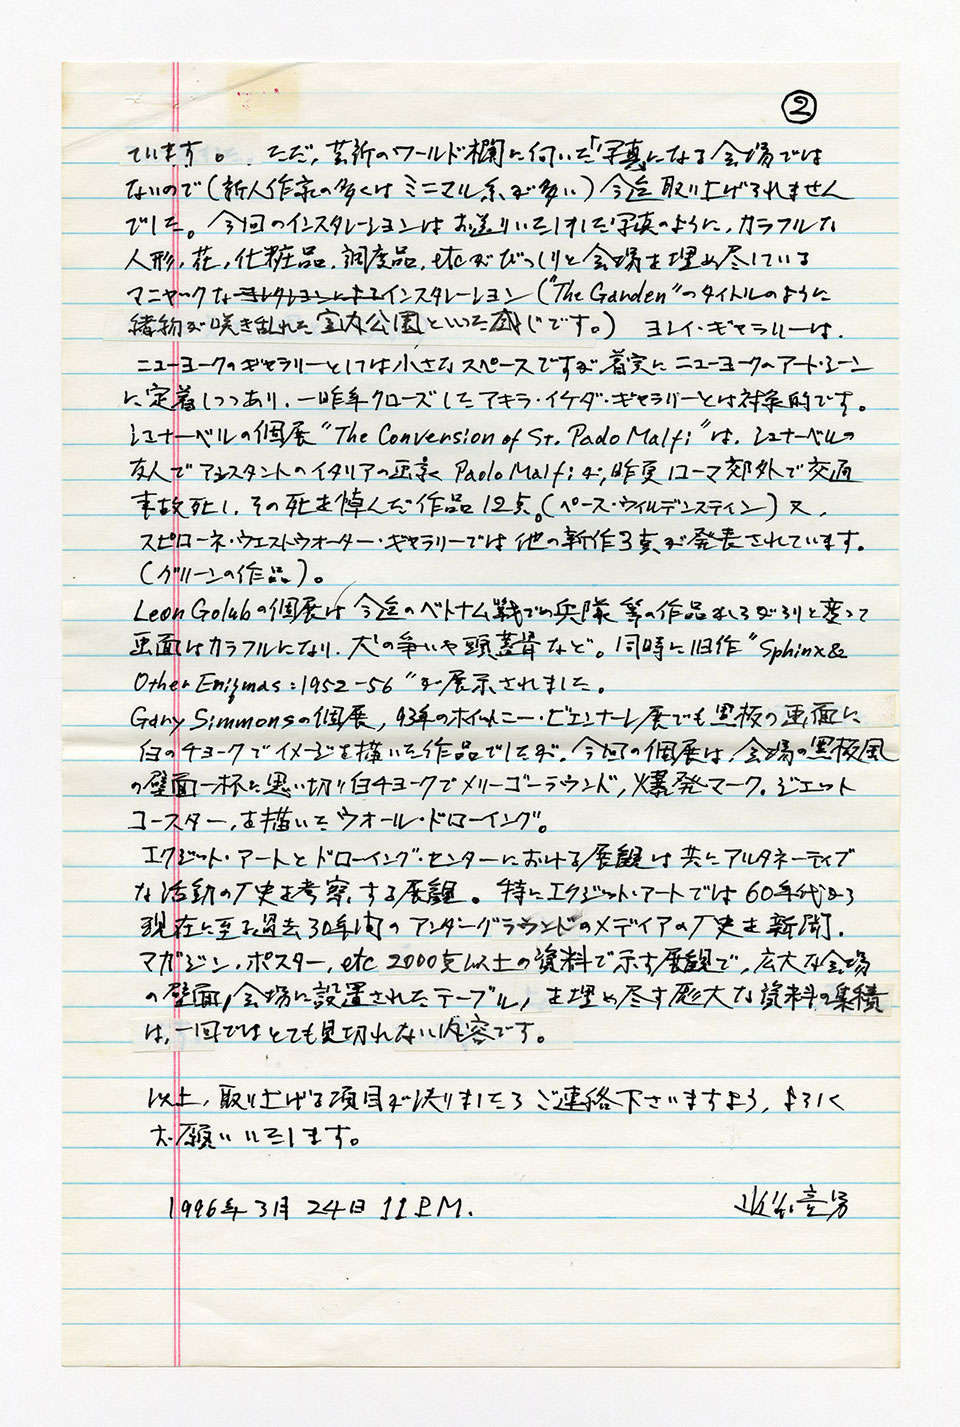 ②
ています。 ただ、芸新のワールド欄に向いた「写真になる会場では
ないので(新人作家の多くは ミニマル系が多い) 今迄取り上げられません
でした。今回のインスタレーションは お送りいたしました写真のように、カラフルな
人形, 花, 化粧品, 調度品, etc がびっしりと会場を埋め尽している
マニヤックなインスタレーション ("The Garden"のタイトルのように
植物が咲き乱れた 室内公園といった感じです。) ヨシイ・ギャラリーは、
ニューヨークのギャラリーとしては小さなスペースですが 着実に ニューヨークのアート・シーン
に定着しつつあり、一昨年クローズしたアキラ・イケダ・ギャラリーとは対象的です。
シュナーベルの個展 "The Conversion of St. Paolo Malfi" は、シュナーベルの
友人でアシスタントのイタリアの画家 Paolo Malfi が、昨夏ローマ郊外で交通
事故死し、その死を悼んだ作品12点。(ペース・ウィルデンスティン) 又、
スピローネ・ウエストウオーター・ギャラリーでは 他の新作3点が発表されています。
(グリーンの作品)。
Leon Golubの個展は 今迄のベトナム戦での兵隊 等の作品からがらりと変って
画面はカラフルになり、犬の争いや頭蓋骨など。同時に旧作 "Sphinx &
Other Enigmas : 1952-56" が展示されました。
Gary Simmonsの個展, 93年のホイットニー・ビエンナーレ展でも黒板の画面に
白のチョークでイメージを描いた作品でしたが、今回の個展は、会場の黒板風
の壁面一杯に思い切り白チョークでメリーゴーラウンド, 爆発マーク、ジェット
コースター、を描いたウオール・ドローイング。
エクジット・アートとドローイング・センターにおける展観は共にアルタネーティブ
な活動の歴史を考察する展観。 特にエクジット・アートでは 60年代から
現在に至る過去30年間のアンダーグラウンドのメディアの歴史を新聞、
マガジン、ポスター, etc 2000点以上の資料で示す展観で、広大な会場
の壁面, 会場に設置されたテーブル, を埋め尽す膨大な資料の集積
は、一回ではとても見切れない内容です。
以上、取り上げる項目が決りましたら ご連絡下さいますよう、よろしく
お願いいたします。
1996年3月24日 11P.M.